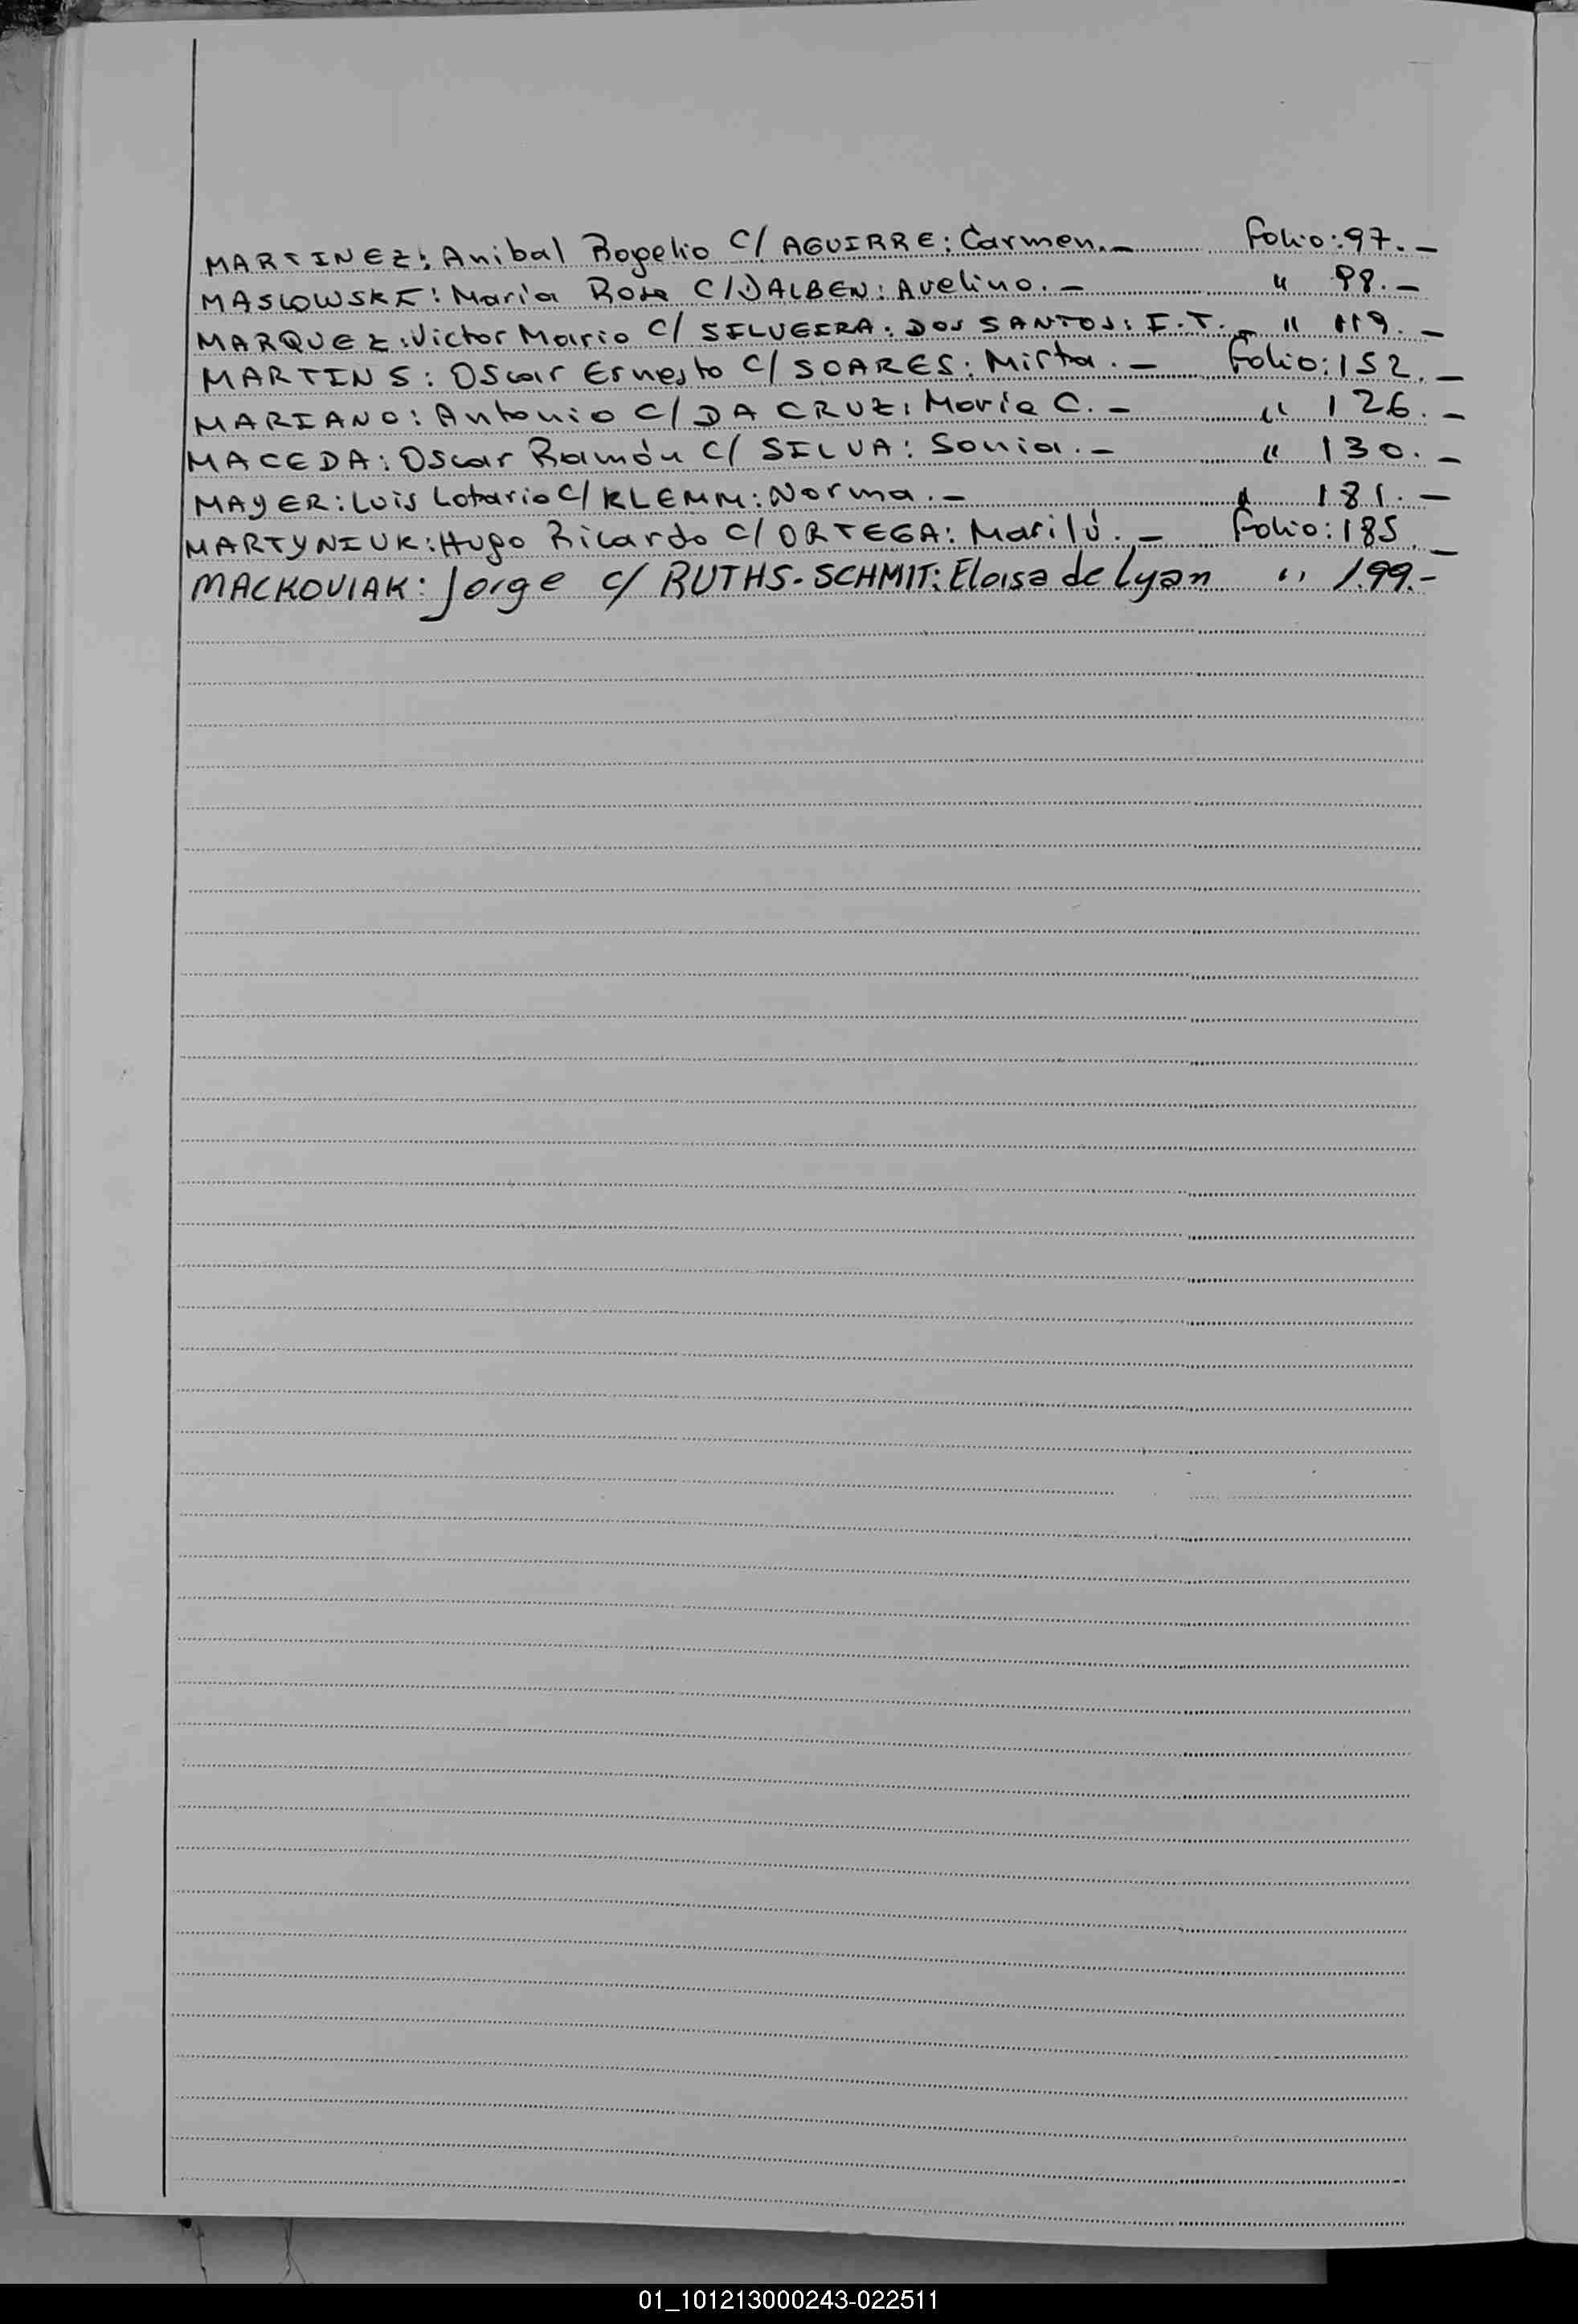 MARTINEZ: Anibal Rogelio C/ AGUIRRE: Carmen.- Folio: 97.-
MASLOWSKI: María Rosa C/ DALBEN: Avelino.- " 98.-
MARQUEZ: Victor Mario C/ SILVEIRA: DOS SANTOS: I.T.- " 119.-
MARTINS: Oscar Ernesto C/ SOARES: Mirta.- Folio: 152.-
MARIANO: Antonio C/ DA CRUZ: Maria C.- " 126.-
MACEDA: Oscar Ramón C/ SILVA: Sonia.- " 130.-
MAYER: Luis Lotario C/ KLEMM: Norma.- " 181.-
MARTYNIUK: Hugo Ricardo C/ ORTEGA: Marilú.- Folio: 185.-
MACKOVIAK: Jorge c/ RUTHS-SCHMIT: Eloisa de Lyan " 199.-
01_101213000243-022511